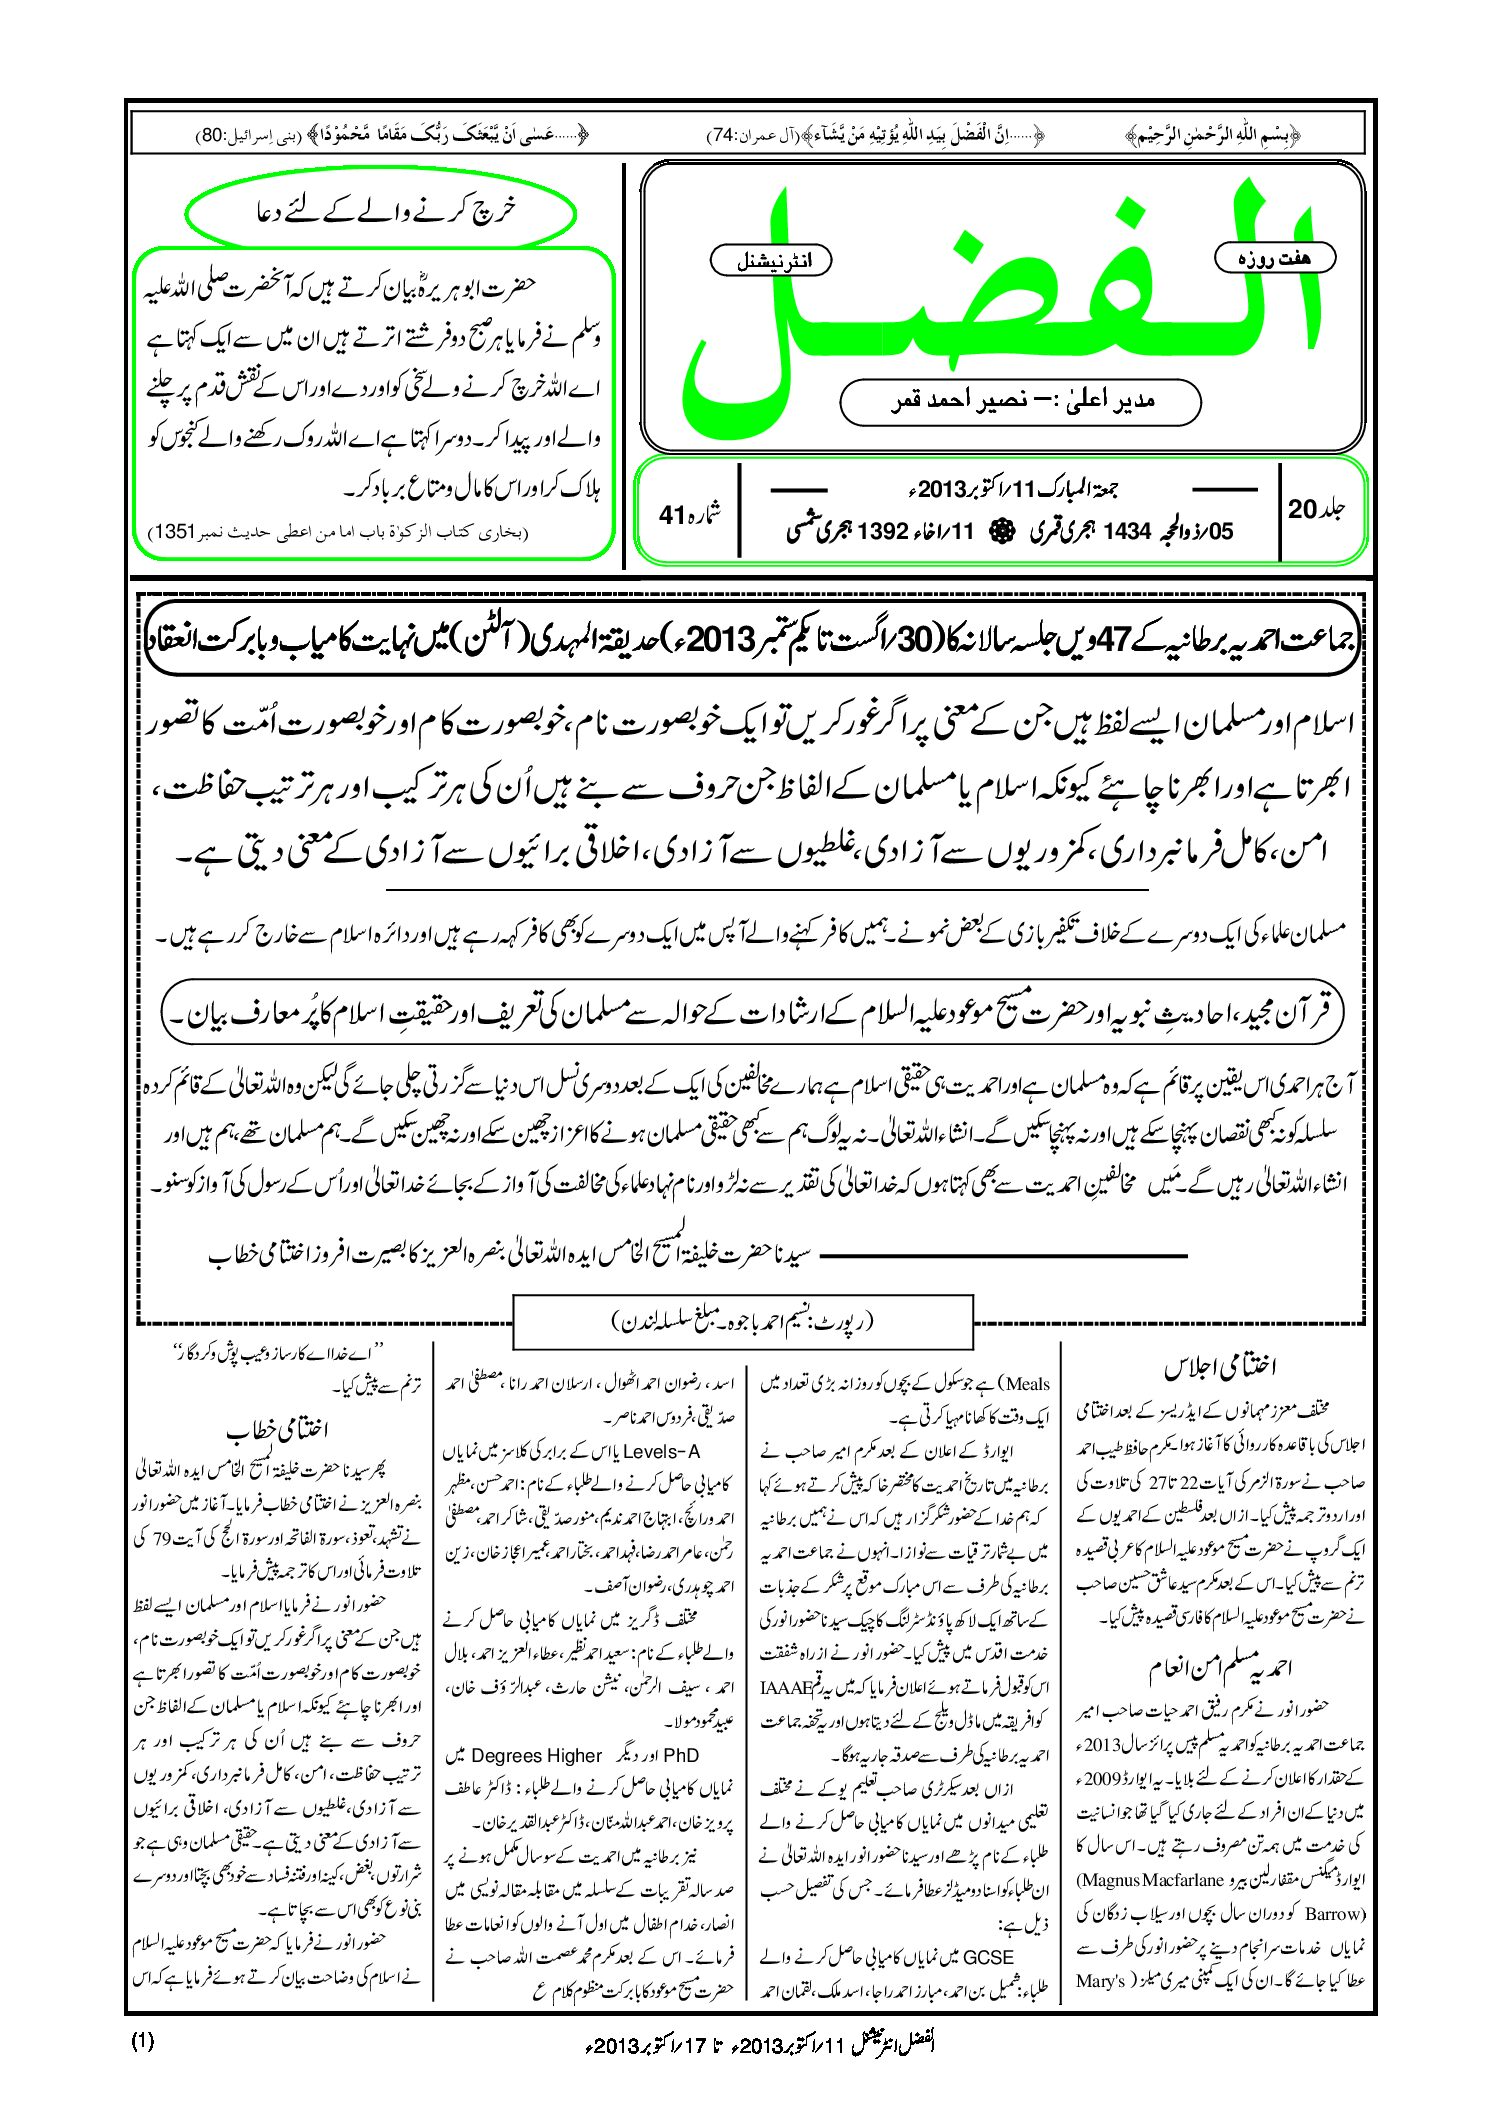 ﴿بِسْمِ اللّٰهِ الرَّحْمٰنِ الرَّحِيْمِ﴾
﴿......اِنَّ الْفَضْلَ بِيَدِ اللّٰهِ يُؤْتِيْهِ مَنْ يَّشَآء﴾(آل عمران:74)
﴿......عَسٰى اَنْ يَّبْعَثَكَ رَبُّكَ مَقَامًا مَّحْمُوْدًا﴾ (بنی اِسرائیل:80)
الفضل
ہفت روزہ
انٹرنیشنل
مدیر اعلیٰ :– نصیر احمد قمر
جلد 20
جمعۃ المبارک 11؍اکتوبر2013ء
05؍ذوالحجہ 1434 ہجری قمری
11؍اخاء 1392 ہجری شمسی
شمارہ 41
خرچ کرنے والے کے لئے دعا
حضرت ابوہریرہؓ بیان کرتے ہیں کہ آنحضرت صلی اللہ علیہ
وسلم نے فرمایا ہر صبح دو فرشتے اترتے ہیں ان میں سے ایک کہتا ہے
اے اللہ خرچ کرنے والے سخی کو اور دے اور اس کے نقش قدم پر چلنے
والے اور پیدا کر۔ دوسرا کہتا ہے اے اللہ روک رکھنے والے کنجوس کو
ہلاک کر اور اس کا مال و متاع برباد کر۔
(بخاری کتاب الزکوٰۃ باب اما من اعطی حدیث نمبر1351)
جماعت احمدیہ برطانیہ کے 47ویں جلسہ سالانہ کا (30؍اگست تا یکم ستمبر 2013ء) حدیقۃ المہدی (آلٹن) میں نہایت کامیاب و بابرکت انعقاد
اسلام اور مسلمان ایسے لفظ ہیں جن کے معنی پر اگر غور کریں تو ایک خوبصورت نام، خوبصورت کام اور خوبصورت اُمّت کا تصور
ابھرتا ہے اور ابھرنا چاہئے کیونکہ اسلام یا مسلمان کے الفاظ جن حروف سے بنے ہیں اُن کی ہر ترکیب اور ہر ترتیب حفاظت،
امن، کامل فرمانبرداری، کمزوریوں سے آزادی، غلطیوں سے آزادی، اخلاقی برائیوں سے آزادی کے معنی دیتی ہے۔
مسلمان علماء کی ایک دوسرے کے خلاف تکفیر بازی کے بعض نمونے۔ ہمیں کافر کہنے والے آپس میں ایک دوسرے کو بھی کافر کہہ رہے ہیں اور دائرہ اسلام سے خارج کر رہے ہیں۔
قرآن مجید، احادیثِ نبویہ اور حضرت مسیح موعود علیہ السلام کے ارشادات کے حوالہ سے مسلمان کی تعریف اور حقیقتِ اسلام کا پُر معارف بیان۔
آج ہر احمدی اس یقین پر قائم ہے کہ وہ مسلمان ہے اور احمدیت ہی حقیقی اسلام ہے ہمارے مخالفین کی ایک کے بعد دوسری نسل اس دنیا سے گزرتی چلی جائے گی لیکن وہ اللہ تعالیٰ کے قائم کردہ
سلسلہ کو نہ کبھی نقصان پہنچا سکے ہیں اور نہ پہنچا سکیں گے۔ انشاء اللہ تعالیٰ۔ نہ یہ لوگ ہم سے کبھی حقیقی مسلمان ہونے کا اعزاز چھین سکے اور نہ چھین سکیں گے۔ ہم مسلمان تھے، ہم ہیں اور
انشاء اللہ تعالیٰ رہیں گے۔ مَیں مخالفینِ احمدیت سے بھی کہتا ہوں کہ خدا تعالیٰ کی تقدیر سے نہ لڑو اور نام نہاد علماء کی مخالفت کی آواز کے بجائے خدا تعالیٰ اور اُس کے رسول کی آواز کو سنو۔
سیدنا حضرت خلیفۃ المسیح الخامس ایدہ اللہ تعالیٰ بنصرہ العزیز کا بصیرت افروز اختتامی خطاب
(رپورٹ: نسیم احمد باجوہ۔ مبلغ سلسلہ لندن)
اختتامی اجلاس
مختلف معزز مہمانوں کے ایڈریسز کے بعد اختتامی
اجلاس کی باقاعدہ کارروائی کا آغاز ہوا۔ مکرم حافظ طیب احمد
صاحب نے سورۃ الزمر کی آیات 22 تا 27 کی تلاوت کی
اور اردو ترجمہ پیش کیا۔ ازاں بعد فلسطین کے احمدیوں کے
ایک گروپ نے حضرت مسیح موعود علیہ السلام کا عربی قصیدہ
ترنم سے پیش کیا۔ اس کے بعد مکرم سید عاشق حسین صاحب
نے حضرت مسیح موعود علیہ السلام کا فارسی قصیدہ پیش کیا۔
احمدیہ مسلم امن انعام
حضور انور نے مکرم رفیق احمد حیات صاحب امیر
جماعت احمدیہ برطانیہ کو احمدیہ مسلم پیس پرائز سال 2013ء
کے حقدار کا اعلان کرنے کے لئے بلایا۔ یہ ایوارڈ 2009ء
میں دنیا کے ان افراد کے لئے جاری کیا گیا تھا جو انسانیت
کی خدمت میں ہمہ تن مصروف رہتے ہیں۔ اس سال کا
ایوارڈ میگنس مقفارلین بیرو Magnus Macfarlane)
(Barrow کو دوران سال بچوں اور سیلاب زدگان کی
نمایاں خدمات سرانجام دینے پر حضور انور کی طرف سے
عطا کیا جائے گا۔ ان کی ایک کمپنی میری میلز ( Mary's
Meals) ہے جو سکول کے بچوں کو روزانہ بڑی تعداد میں
ایک وقت کا کھانا مہیا کرتی ہے۔
ایوارڈ کے اعلان کے بعد مکرم امیر صاحب نے
برطانیہ میں تاریخ احمدیت کا مختصر خاکہ پیش کرتے ہوئے کہا
کہ ہم خدا کے حضور شکر گزار ہیں کہ اس نے ہمیں برطانیہ
میں بے شمار ترقیات سے نوازا۔ انہوں نے جماعت احمدیہ
برطانیہ کی طرف سے اس مبارک موقع پر شکر کے جذبات
کے ساتھ ایک لاکھ پاؤنڈ سٹرلنگ کا چیک سیدنا حضور انور کی
خدمت اقدس میں پیش کیا۔ حضور انور نے ازراہ شفقت
اس کو قبول فرماتے ہوئے اعلان فرمایا کہ میں یہ رقم IAAAE
کو افریقہ میں ماڈل ویلج کے لئے دیتا ہوں اور یہ تحفہ جماعت
احمدیہ برطانیہ کی طرف سے صدقہ جاریہ ہوگا۔
ازاں بعد سیکرٹری صاحب تعلیم یوکے نے مختلف
تعلیمی میدانوں میں نمایاں کامیابی حاصل کرنے والے
طلباء کے نام پڑھے اور سیدنا حضور انور ایدہ اللہ تعالیٰ نے
ان طلباء کو اسناد و میڈلز عطا فرمائے۔ جس کی تفصیل حسب
ذیل ہے:
GCSE میں نمایاں کامیابی حاصل کرنے والے
طلباء: شمیل بن احمد، مبارز احمد راجا، اسد ملک، لقمان احمد
اسد، رضوان احمد اٹھوال، ارسلان احمد رانا، مصطفیٰ احمد
صدّیقی، فردوس احمد ناصر۔
Levels-A یا اس کے برابر کی کلاسز میں نمایاں
کامیابی حاصل کرنے والے طلباء کے نام: احمد حسن، مظہر
احمد وڑائچ، ابتہاج احمد ندیم، منور صدّیقی، شاکر احمد، مصطفیٰ
رحمٰن، عامر احمد رضا، فہد احمد، بختار احمد، عمیر اعجاز خان، زین
احمد چوہدری، رضوان آصف۔
مختلف ڈگریز میں نمایاں کامیابی حاصل کرنے
والے طلباء کے نام: سعید احمد نظیر، عطاء العزیز احمد، بلال
احمد، سیف الرحمٰن، نیشن حارث، عبدالرّؤف خان،
عبید محمود مولا۔
PhD اور دیگر Degrees Higher میں
نمایاں کامیابی حاصل کرنے والے طلباء: ڈاکٹر عاطف
پرویز خان، احمد عبداللہ منّان، ڈاکٹر عبدالقدیر خان۔
نیز برطانیہ میں احمدیت کے سو سال مکمل ہونے پر
صد سالہ تقریبات کے سلسلہ میں مقابلہ مقالہ نویسی میں
انصار، خدام اطفال میں اول آنے والوں کو انعامات عطا
فرمائے۔ اس کے بعد مکرم محمد عصمت اللہ صاحب نے
حضرت مسیح موعود کا بابرکت منظوم کلام ع
’’اے خدا اے کارساز و عیب پوش و کردگار‘‘
ترنم سے پیش کیا۔
اختتامی خطاب
پھر سیدنا حضرت خلیفۃ المسیح الخامس ایدہ اللہ تعالیٰ
بنصرہ العزیز نے اختتامی خطاب فرمایا۔ آغاز میں حضور انور
نے تشہد، تعوذ، سورۃ الفاتحہ اور سورۃ الحج کی آیت 79 کی
تلاوت فرمائی اور اس کا ترجمہ پیش فرمایا۔
حضور انور نے فرمایا اسلام اور مسلمان ایسے لفظ
ہیں جن کے معنی پر اگر غور کریں تو ایک خوبصورت نام،
خوبصورت کام اور خوبصورت اُمّت کا تصور ابھرتا ہے
اور ابھرنا چاہئے کیونکہ اسلام یا مسلمان کے الفاظ جن
حروف سے بنے ہیں اُن کی ہر ترکیب اور ہر
ترتیب حفاظت، امن، کامل فرمانبرداری، کمزوریوں
سے آزادی، غلطیوں سے آزادی، اخلاقی برائیوں
سے آزادی کے معنی دیتی ہے۔ حقیقی مسلمان وہی ہے جو
شرارتوں، بغض، کینہ اور فتنہ فساد سے خود بھی بچتا اور دوسرے
بنی نوع کو بھی اس سے بچاتا ہے۔
حضور انور نے فرمایا کہ حضرت مسیح موعود علیہ السلام
نے اسلام کی وضاحت بیان کرتے ہوئے فرمایا ہے کہ اس
الفضل انٹرنیشنل 11؍اکتوبر2013ء تا 17؍اکتوبر2013ء
(1)